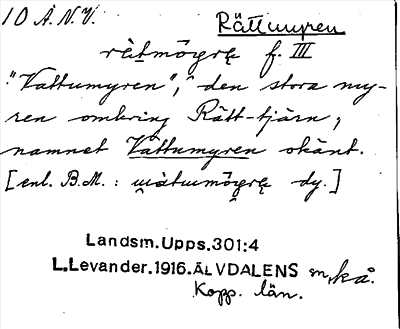 10 Å.N.V. Rättmyren
rätmögrę f. III
"Vattumyren", den stora my-
ren omkring Rätt-tjärn;
namnet Vattumyren okänt.
[enl. B.M.: dy.]
Landsm.Upps.301:4
L.Levander.1916.ÄLVDALENS
Kopp. län.